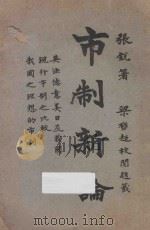 張銳著 梁啓超校閱題
市制新論
英法德意美日
現行市制之比較
我國之理想的市制